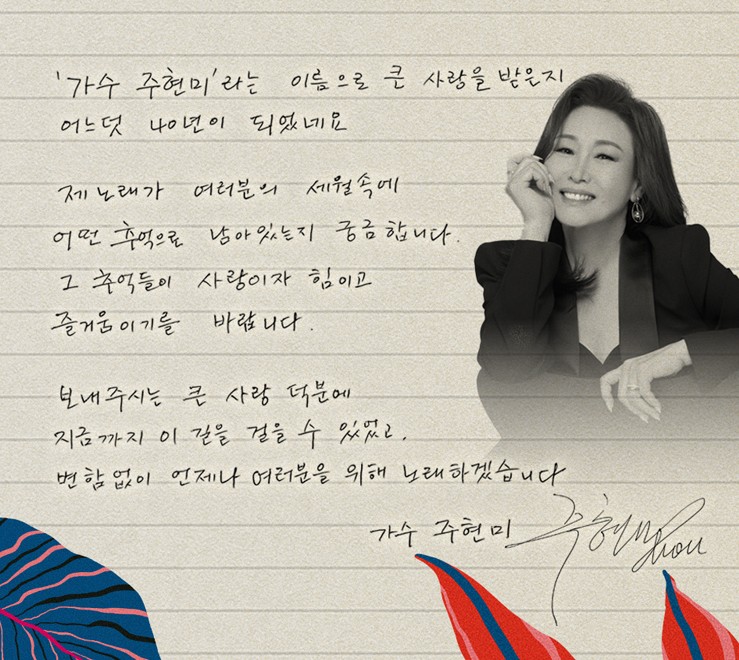 '가수 주현미'라는 이름으로 큰 사랑을 받은지
어느덧 40년이 되었네요
제 노래가 여러분의 세월속에
어떤 추억으로 남아있는지 궁금합니다.
그 추억들이 사랑이자 힘이고
즐거움이기를 바랍니다.
보내주시는 큰 사랑 덕분에
지금까지 이 길을 걸을 수 있었고,
변함없이 언제나 여러분을 위해 노래하겠습니다
가수 주현미
주현미